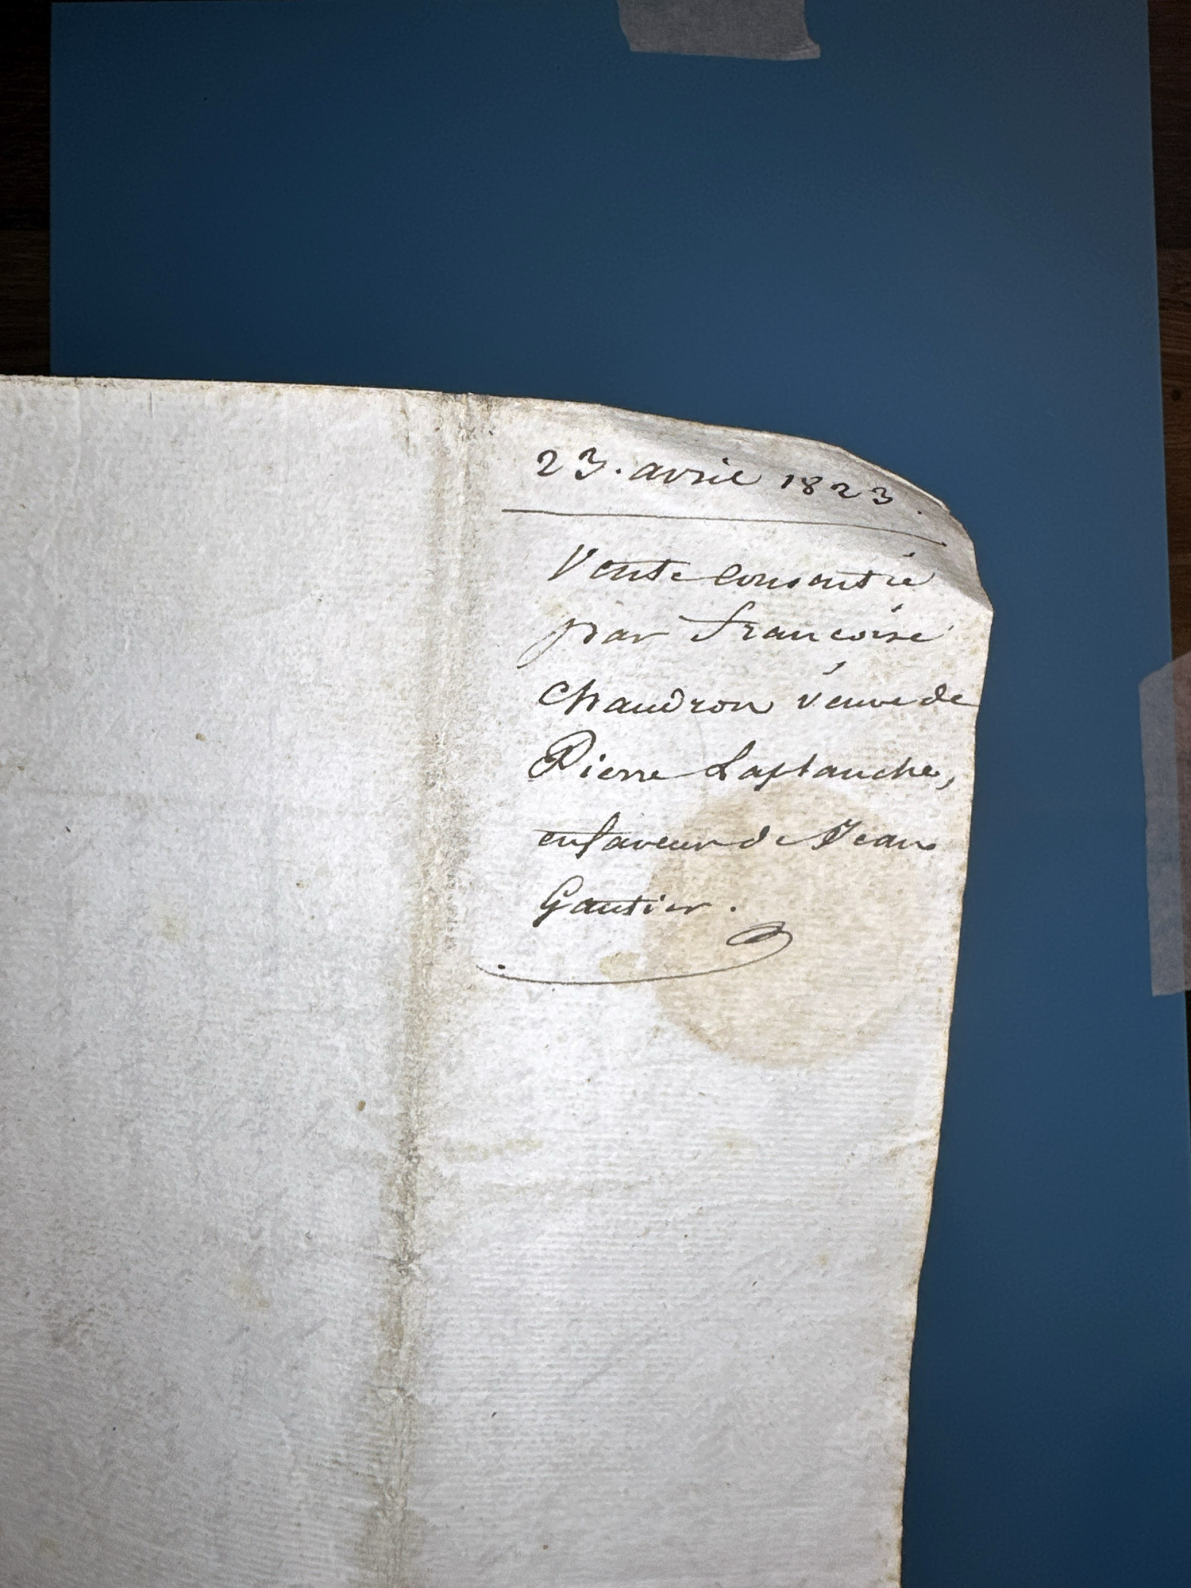 23. avril 1823.
Vente consentie
par francoise
chaudron veuve de
Pierre Laplanche,
en faveur de Jean
Gautier.